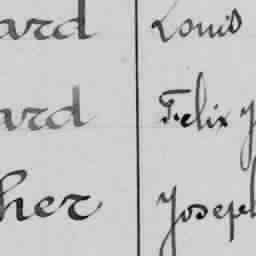 ard Louis
ard Felix J
her Joseph